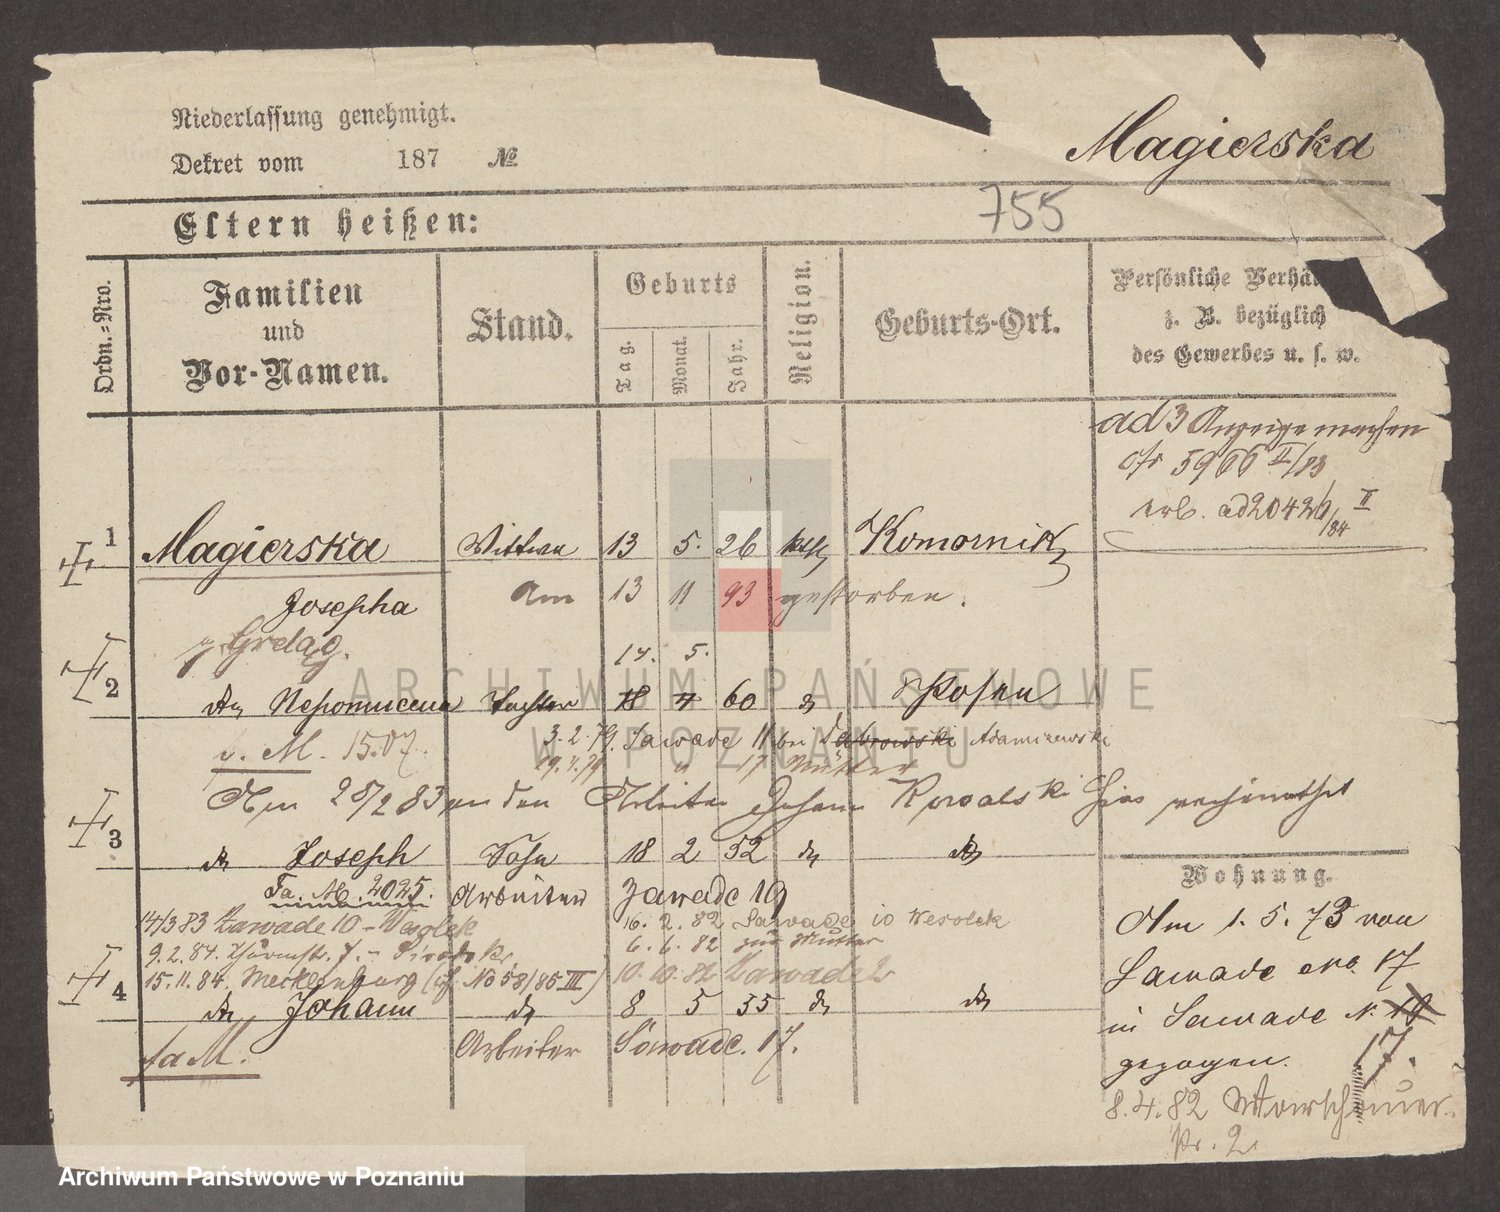 Niederlassung genehmigt.
Dekret vom 187 №
Magierska
755
Eltern heißen:
Ordn.=Nro.
Familien
und
Vor-Namen.
Stand.
Geburts
Tag.
Monat.
Jahr.
Religion.
Geburts-Ort.
Persönliche Verhä
z. B. bezüglich
des Gewerbes u. s. w.
ad 3 Anzeige machen
5966 II/83
ad 20426/84 II
1 Magierska Wittwe 13 5. 26 kath Komornik
Josepha am 13 11 93 gestorben.
g. Grelag.
14. 5.
2 do Nepomucena Tochter 18 4 60 do Posen
3.2.79. Sawade 11 bei Dabrowski Adamizewski
v. M. 15.07. 17 Mutter
Am 28/2 83 an den Arbeiter Johann Kowalski hier verheirathet
3 do Joseph Sohn 18 2 52 do do
Fa. M. 2025. Arbeiter Zawade 19
14/3 83 Zawade 10 - 16. 2. 82 Sawade 10 Wesolek
9.2.84. 6. 6. 82 zur Mutter
15.11.84. Mecklenburg (cf. No 58/85 III) 10.10.82 Zawade 2
4 do Johann do 8 5 55 do do
fa M. Arbeiter Sawade. 17.
Wohnung.
Am 1. 5. 73 von
Sawade No 17
in Sawade N. 19
gezogen. 17.
8.4.82 Warschauer-
Str. 2
ARCHIWUM PAŃSTWOWE
W POZNANIU
Archiwum Państwowe w Poznaniu